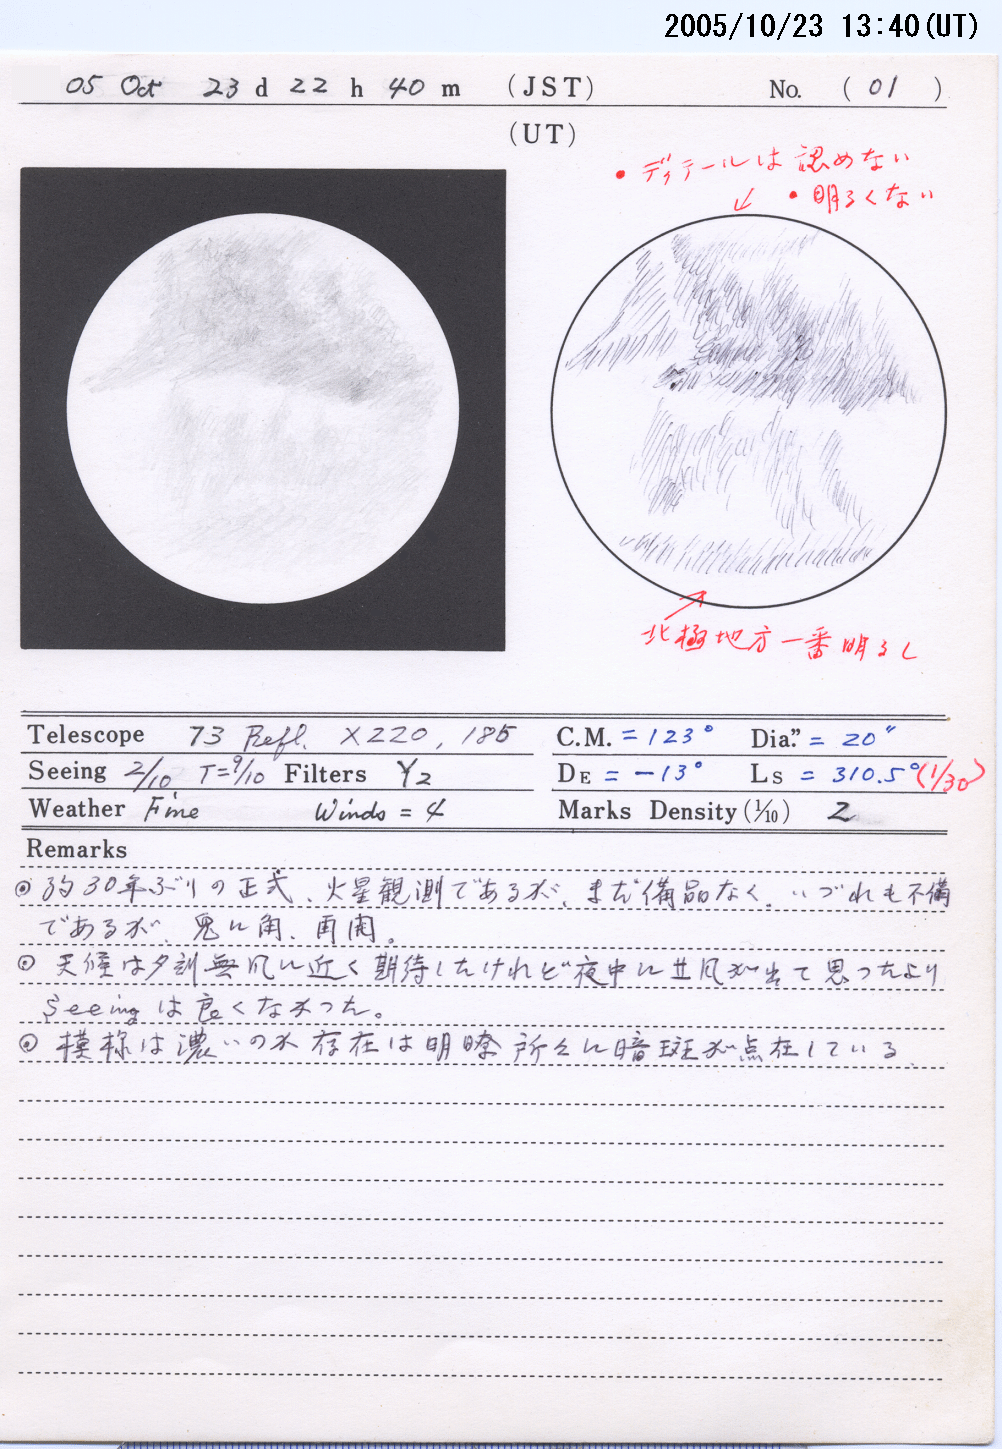 2005/10/23 13:40(UT)
05 Oct 23 d 22 h 40 m (JST) No. (01)
(UT)
・ディテールは認めない
・明るくない
北極地方一番明るし
Telescope 73 Refl. ×220, 185
C.M. = 123° Dia." = 20"
Seeing 2/10 T=9/10 Filters Y2
DE = -13° Ls = 310.5° (1/30)
Weather Fine Winds = 4
Marks Density (1/10) 2
Remarks
◎ 約30年ぶりの正式、火星観測であるが、まだ備品なく、いづれも不備
であるが、兎に角、再開。
◎ 天候は夕刻無風に近く期待したけれど夜中に 風が出て思ったより
Seeingは良くなかった。
◎ 模様は濃いのか存在は明瞭 所々に暗斑が点在している